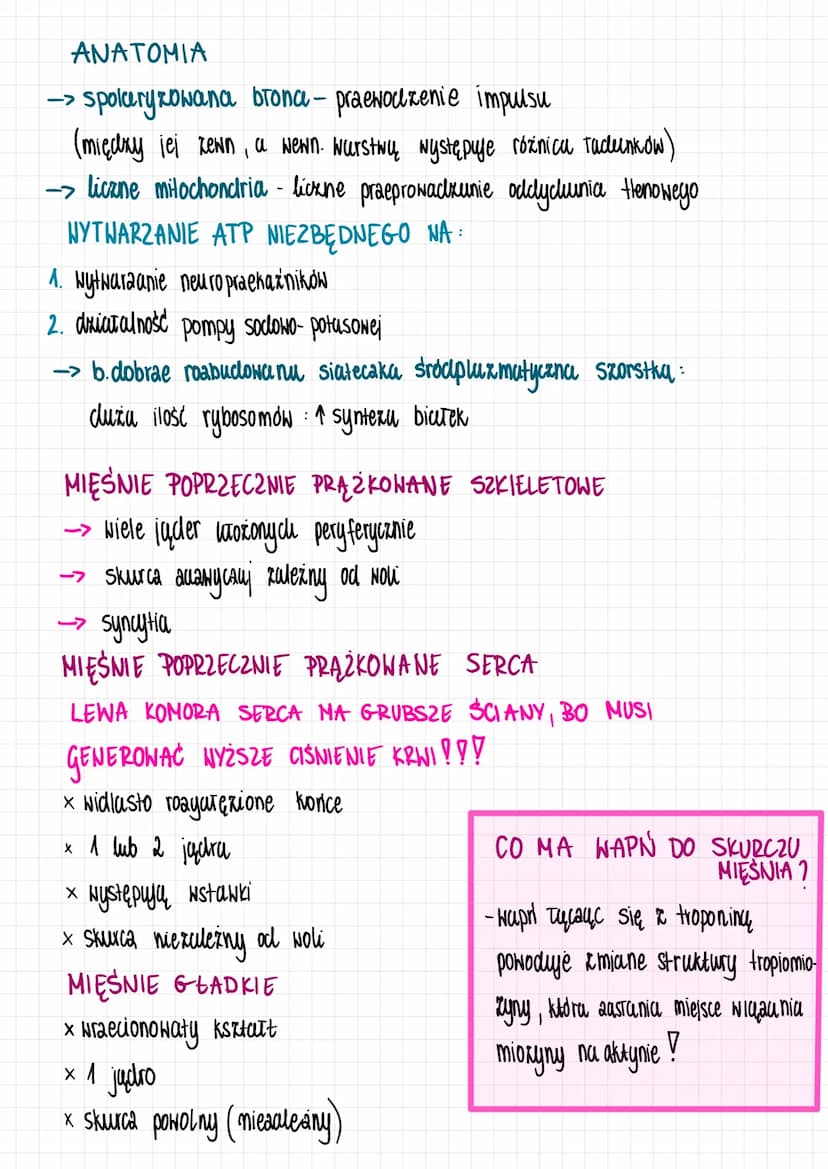 ANATOMIA
-> spolaryzowana błona - przewodzenie impulsu
(między jej zewn, a wewn. warstwą występuje różnica ładunków)
-> liczne mitochondria - liczne przeprowadzanie oddychania tlenowego
WYTWARZANIE ATP NIEZBĘDNEGO NA:
1. wytwarzanie neuroprzekaźników
2. działalność pompy sodowo-potasowej
-> b.dobrze rozbudowana siateczka śródplazmatyczna szorstka:
duża ilość rybosomów : ↑ synteza białek
MIĘŚNIE POPRZECZNIE PRĄŻKOWANE SZKIELETOWE
-> wiele jąder ułożonych peryferycznie
-> skurcz zazwyczaj zależny od woli
-> syncytia
MIĘŚNIE POPRZECZNIE PRĄŻKOWANE SERCA
LEWA KOMORA SERCA MA GRUBSZE ŚCIANY, BO MUSI
GENEROWAĆ WYŻSZE CIŚNIENIE KRWI!!!
x widlasto rozgałęzione końce
x 1 lub 2 jądra
x występują wstawki
x skurcz niezależny od woli
MIĘŚNIE GŁADKIE
x wrzecionowaty kształt
x 1 jądro
x skurcz powolny (niezależny)
CO MA WAPŃ DO SKURCZU
MIĘŚNIA?
- wapń łącząc się z troponiną
powoduje zmiane struktury tropiomio-
zyny, która zasłania miejsce wiązania
miozyny na aktynie!